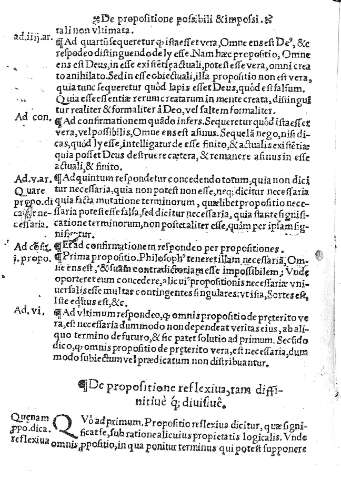 De propositione possibili & impossi.
tali non vltimata.
ad.iiij.ar. ¶Ad quartū sequeretur ꝙ ista esset vera, Omne ens est De⁹, &c
respōdeo distinguendo de ly esse. Nam hæc propositio, Omne
ens est Deus, in esse existētię actuali, potest esse vera, omni crea
to annihilato. Sed in esse obiectuali, illa propositio non est vera,
quia tunc sequeretur quod lapis esset Deus, quod est falsum.
Quia esse essentiæ rerum creatarum in mente creata, distingui
tur realiter & formaliter à Deo, vel saltem formaliter.
Ad con. ¶Ad confirmationem quādo infers. Sequeretur quod ista esset
vera, vel possibilis, Omne ens est asinus. Sequelā nego, nisi di
cas, quòd ly esse, intelligatur de esse finito, & actualis existētiæ
quia posset Deus destruere cætera, & remanere asinus in esse
actuali, & finito.
Ad.v.ar. ¶Ad quintum respondetur concedendo totum, quia non dici
Quare tur necessaria, quia non potest non esse, neqꝫ dicitur necessaria
propo.di quia facta mutatione terminorum, quælibet propositio neces
saria potest esse falsa, sed dicitur necessaria, quia stante signifi-
cessaria. catione terminorum, non potest aliter esse, quàm per ipsam sig
nificetur.
¶Et ad confirmationem respondeo per propositiones.
j. propo. ¶Prima propositio. Philosoph⁹ teneret illam necessariā, Om
ne ens est, & suam contradictoriam esse impossibilem; Vnde
oporteret eum concedere, alicui⁹ propositionis necessariæ vni
uersalis esse multas contingentes singulares. vt ista, Sortes est,
iste equus est, &c.
Ad. vi. ¶Ad vltimum respondeo, ꝙ omnis propositio de præterito ve
ra, est necessaria dummodo non dependeat veritas eius, ab ali-
quo termino de futuro, & sic patet solutio ad primum. Secūdo
dico, ꝙ omnis propositio de præterito vera, est necessaria, dum
modo subiectum vel prædicatum non distribuantur.
¶De propositione reflexiua, tam diffi-
nitiuè ꝗ̃ diuisiuè.
Quenam QVò ad primum. Propositio reflexiua dicitur, quæ signi-
ꝓpo.dica. ficat se, sub ratione alicuius proprietatis logicalis. Vnde
reflexiua omnis ꝓpositio, in qua ponitur terminus qui potest supponere